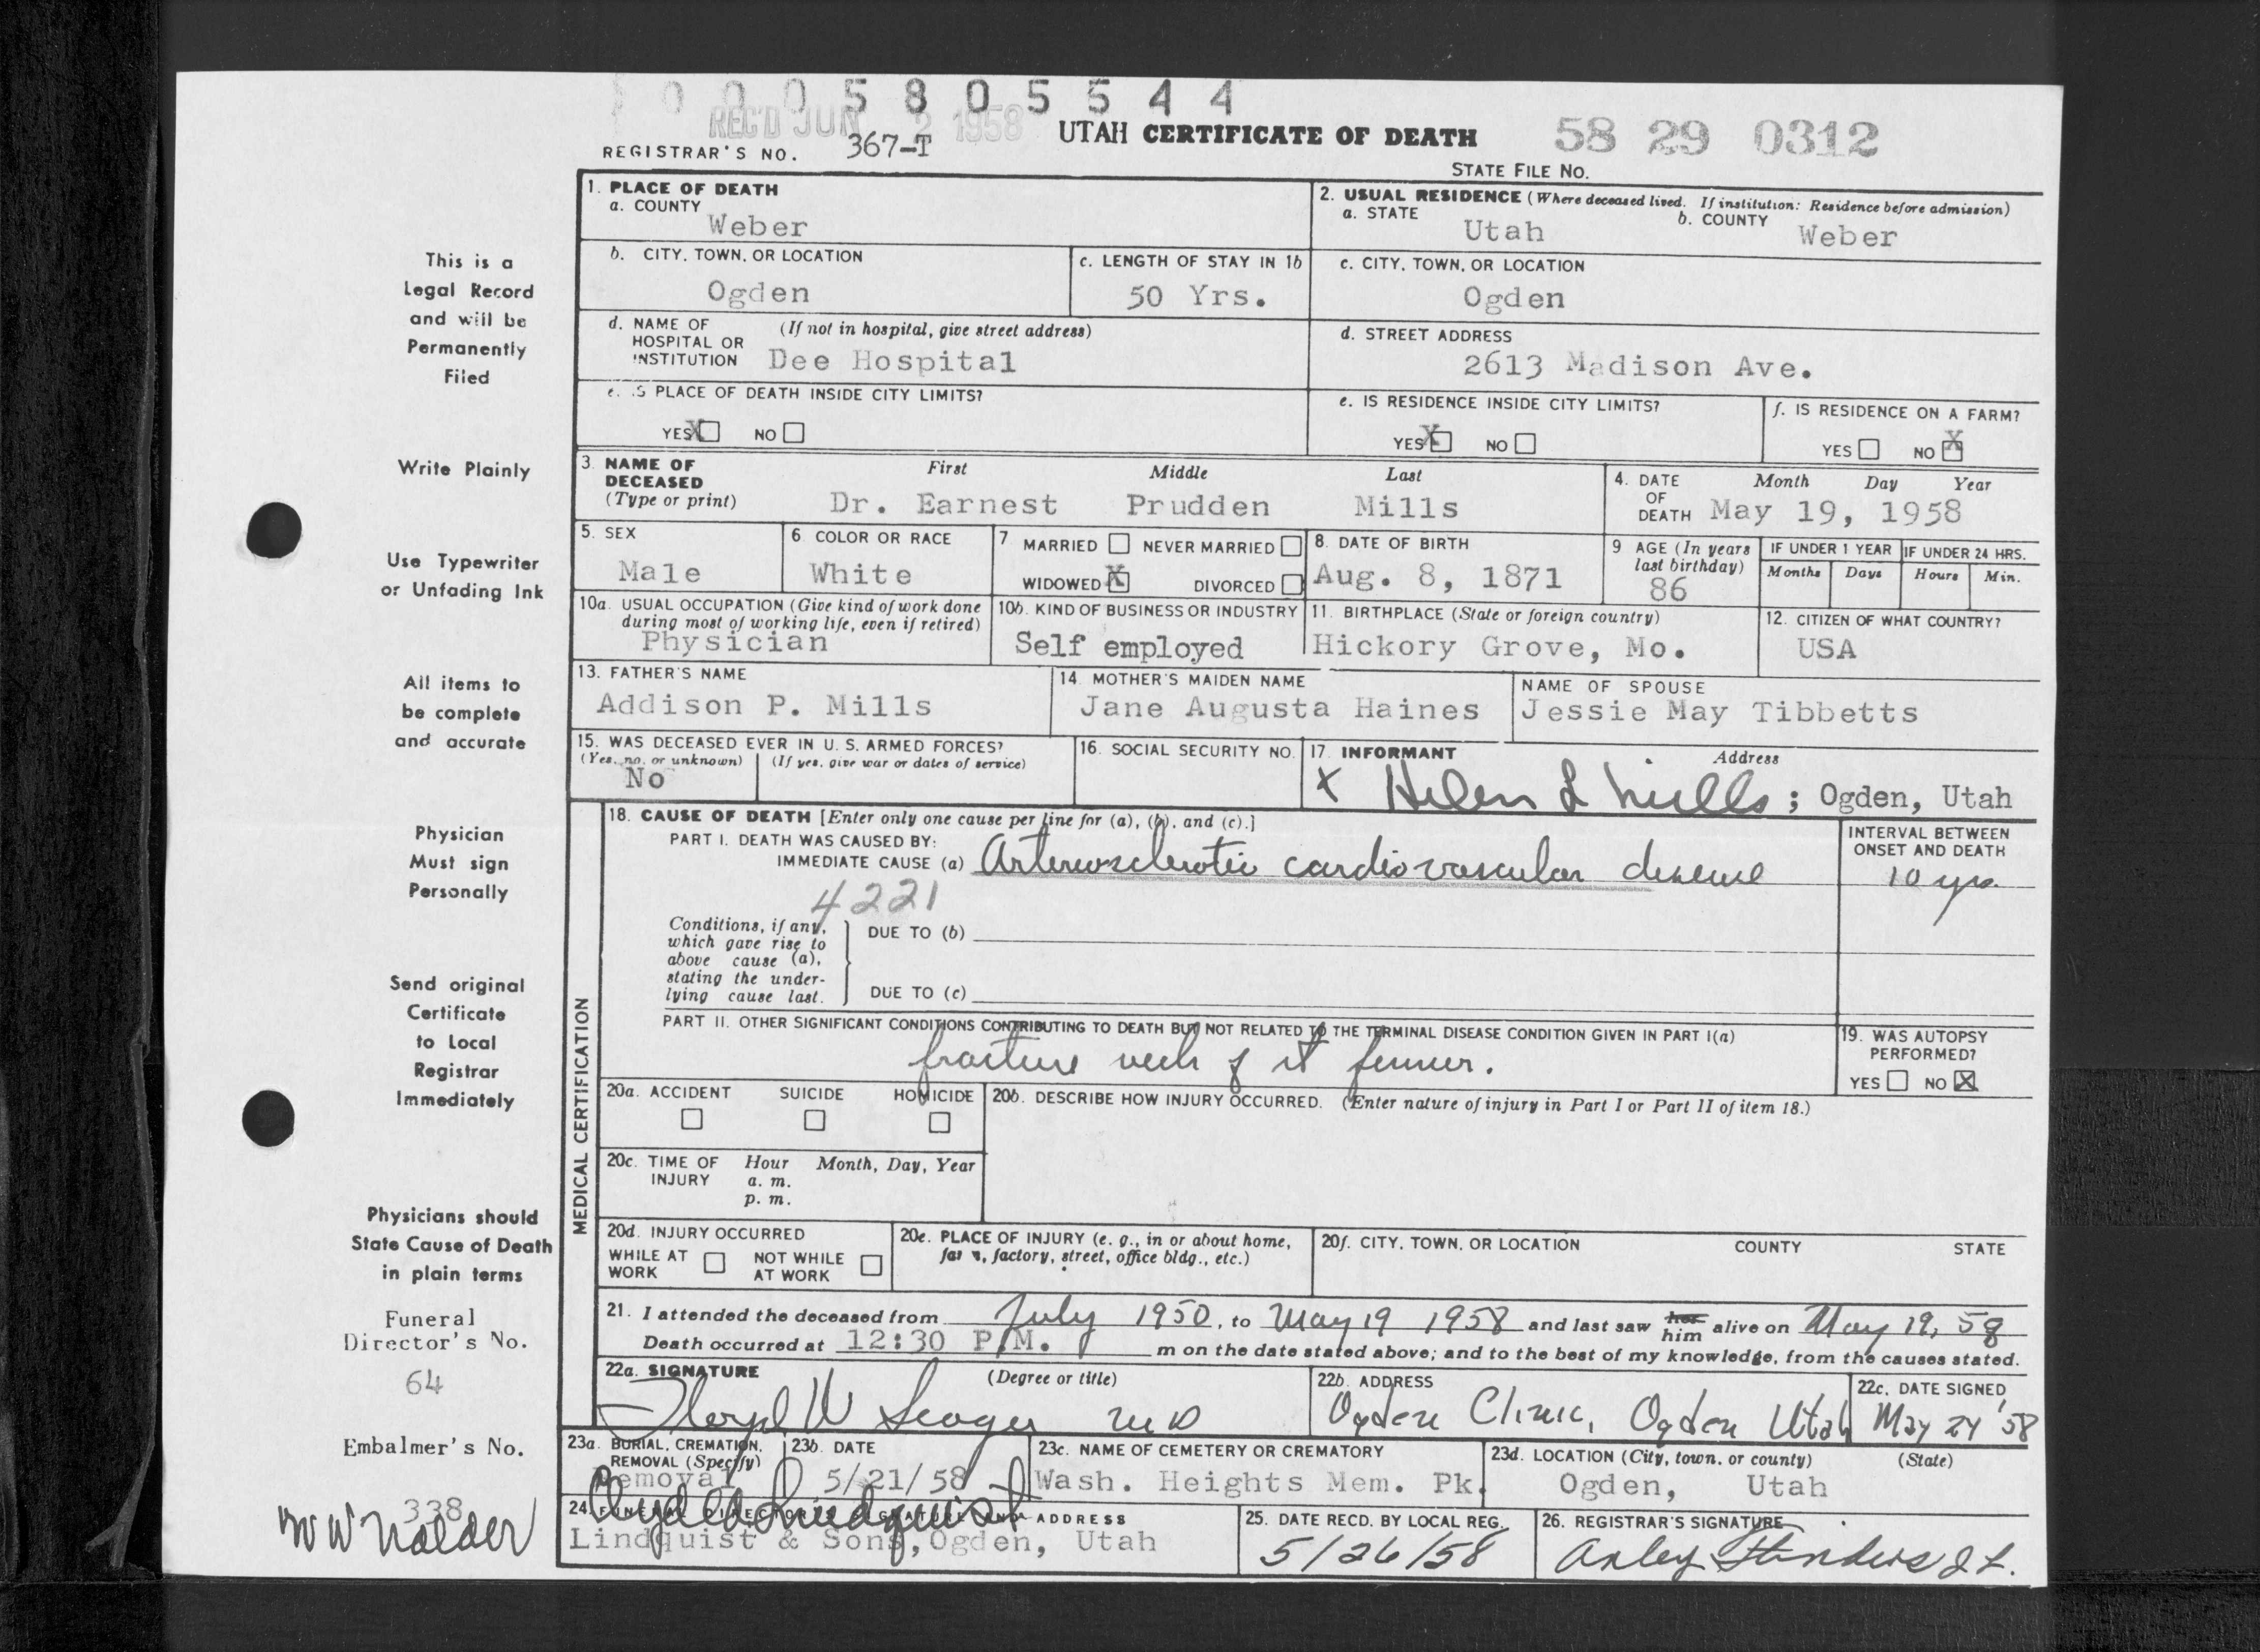 0 0 0 5 8 0 5 5 4 4
REC'D JUN 2 1958
REGISTRAR'S NO. 367-T
UTAH CERTIFICATE OF DEATH
58 29 0312
STATE FILE NO.
This is a
Legal Record
and will be
Permanently
Filed
Write Plainly
Use Typewriter
or Unfading Ink
All items to
be complete
and accurate
Physician
Must sign
Personally
Send original
Certificate
to Local
Registrar
Immediately
Physicians should
State Cause of Death
in plain terms
Funeral
Director's No.
64
Embalmer's No.
338
W W Nalder
1. PLACE OF DEATH
a. COUNTY
Weber
2. USUAL RESIDENCE (Where deceased lived. If institution: Residence before admission)
a. STATE
Utah
b. COUNTY
Weber
b. CITY, TOWN, OR LOCATION
Ogden
c. LENGTH OF STAY IN 1b
50 Yrs.
c. CITY, TOWN, OR LOCATION
Ogden
d. NAME OF (If not in hospital, give street address)
HOSPITAL OR
INSTITUTION Dee Hospital
d. STREET ADDRESS
2613 Madison Ave.
e. IS PLACE OF DEATH INSIDE CITY LIMITS?
YES X NO
e. IS RESIDENCE INSIDE CITY LIMITS?
YES X NO
f. IS RESIDENCE ON A FARM?
YES NO X
3. NAME OF DECEASED (Type or print)
First Middle Last
Dr. Earnest Prudden Mills
4. DATE OF DEATH
Month Day Year
May 19, 1958
5. SEX
Male
6 COLOR OR RACE
White
7 MARRIED NEVER MARRIED
WIDOWED X DIVORCED
8. DATE OF BIRTH
Aug. 8, 1871
9 AGE (In years last birthday)
86
IF UNDER 1 YEAR
Months Days
IF UNDER 24 HRS.
Hours Min.
10a. USUAL OCCUPATION (Give kind of work done
during most of working life, even if retired)
Physician
10b. KIND OF BUSINESS OR INDUSTRY
Self employed
11. BIRTHPLACE (State or foreign country)
Hickory Grove, Mo.
12. CITIZEN OF WHAT COUNTRY?
USA
13. FATHER'S NAME
Addison P. Mills
14. MOTHER'S MAIDEN NAME
Jane Augusta Haines
NAME OF SPOUSE
Jessie May Tibbetts
15. WAS DECEASED EVER IN U. S. ARMED FORCES?
(Yes, no, or unknown) (If yes, give war or dates of service)
No
16. SOCIAL SECURITY NO.
17. INFORMANT Address
x Helen L Mills; Ogden, Utah
MEDICAL CERTIFICATION
18. CAUSE OF DEATH [Enter only one cause per line for (a), (b), and (c).]
PART I. DEATH WAS CAUSED BY:
IMMEDIATE CAUSE (a) Arteriosclerotic cardiovascular disease
INTERVAL BETWEEN
ONSET AND DEATH
10 yrs.
4221
Conditions, if any,
which gave rise to
above cause (a),
stating the under-
lying cause last.
DUE TO (b)
DUE TO (c)
PART II. OTHER SIGNIFICANT CONDITIONS CONTRIBUTING TO DEATH BUT NOT RELATED TO THE TERMINAL DISEASE CONDITION GIVEN IN PART I(a)
fracture neck of rt femur.
19. WAS AUTOPSY
PERFORMED?
YES NO X
20a. ACCIDENT SUICIDE HOMICIDE
20b. DESCRIBE HOW INJURY OCCURRED. (Enter nature of injury in Part I or Part II of item 18.)
20c. TIME OF INJURY
Hour Month, Day, Year
a. m.
p. m.
20d. INJURY OCCURRED
WHILE AT WORK NOT WHILE AT WORK
20e. PLACE OF INJURY (e. g., in or about home,
farm, factory, street, office bldg., etc.)
20f. CITY, TOWN, OR LOCATION COUNTY STATE
21. I attended the deceased from July 1950, to May 19 1958 and last saw her him alive on May 19, 58
Death occurred at 12:30 P.M. m on the date stated above; and to the best of my knowledge, from the causes stated.
22a. SIGNATURE (Degree or title)
Floyd W Seager MD
22b. ADDRESS
Ogden Clinic, Ogden Utah
22c. DATE SIGNED
May 24 '58
23a. BURIAL, CREMATION,
REMOVAL (Specify)
Removal
23b. DATE
5/21/58
23c. NAME OF CEMETERY OR CREMATORY
Wash. Heights Mem. Pk.
23d. LOCATION (City, town, or county) (State)
Ogden, Utah
24. FUNERAL DIRECTOR'S SIGNATURE AND ADDRESS
Lindquist
Lindquist & Sons, Ogden, Utah
25. DATE RECD. BY LOCAL REG.
5/26/58
26. REGISTRAR'S SIGNATURE